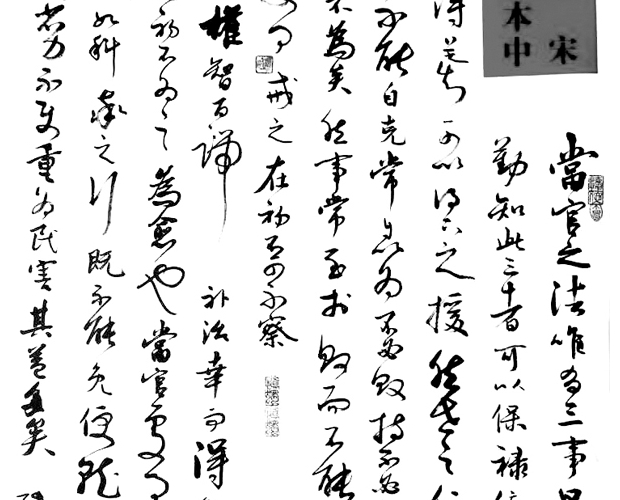 宋
本中
當官之法唯有三事曰
勤知此三者可以保祿位
得上之知可以得下之援然世之仕
不能自克常自以為不必敗持不必
不為矣然事常至於敗而不能
事戒之在初不可不察
權智百端補治幸而得
初不為之為愈也當官處事
如科率之行既不能免便就
省力不使重為民害其益多矣